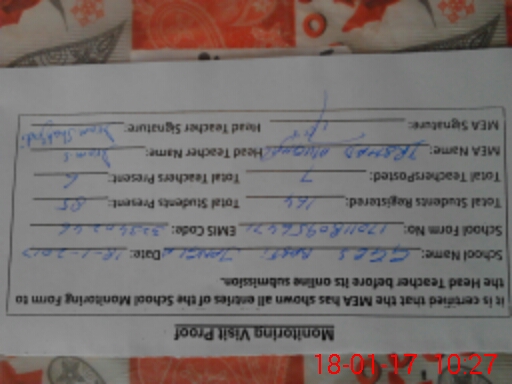 Monitoring Visit Proof
it is certified that the MEA has shown all entries of the School Monitoring Form to
the Head Teacher before its online submission.
School Name: GGES Date: 18-1-2017
School Form No: EMIS Code:
Total Students Registered 164 Total Students Present: 85
Total TeachersPosted: 7 Total Teachers Present: 6
MEA Name: Head Teacher Name:
MEA Signature: Head Teacher Signature:
18-01-17 10:27